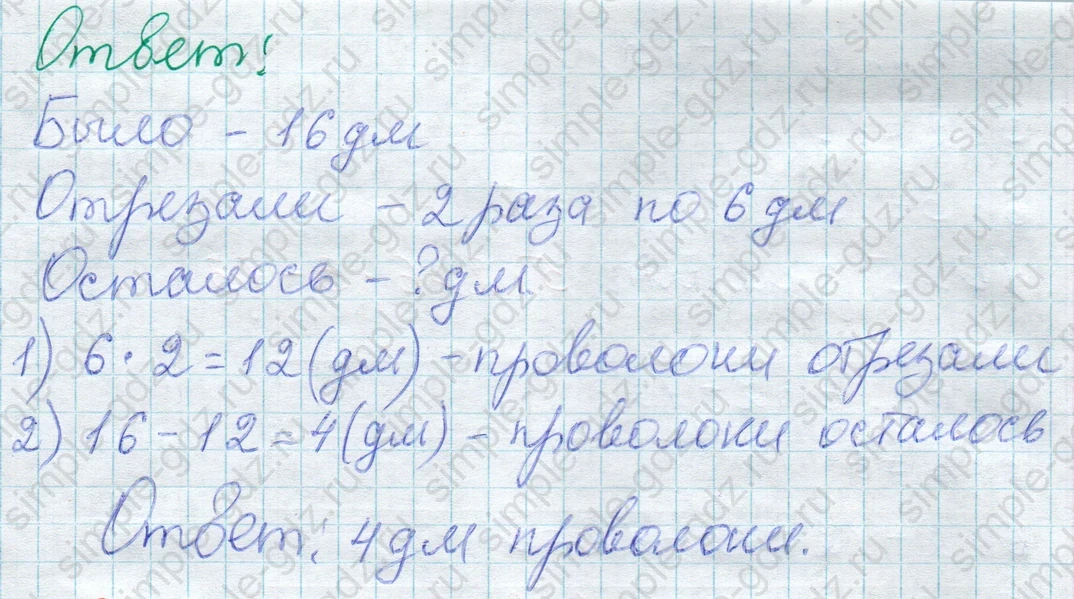 Ответ:
Было - 16 дм
Отрезали - 2 раза по 6 дм
Осталось - ? дм
1) 6 · 2 = 12 (дм) - проволоки отрезали
2) 16 - 12 = 4 (дм) - проволоки осталось
Ответ: 4 дм проволоки.
simple-gdz.ru